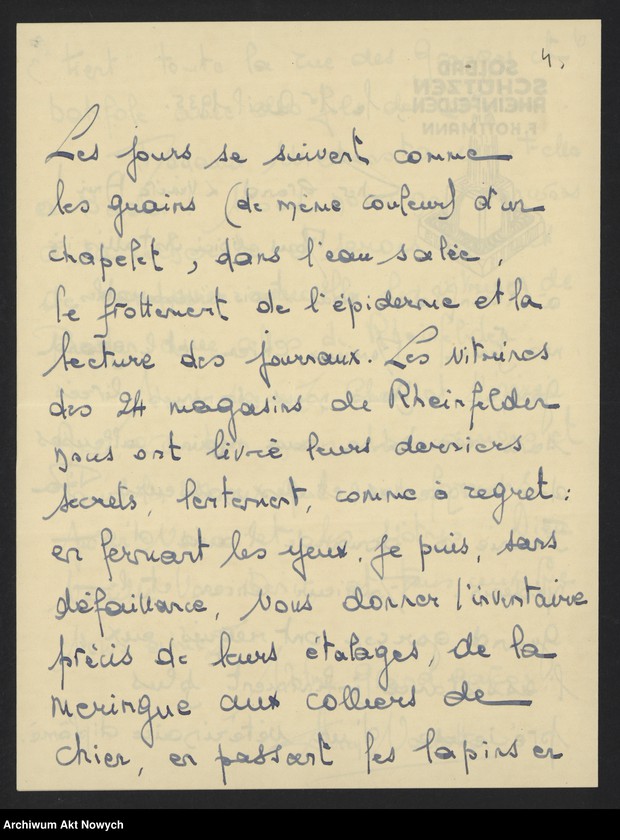 4.
Les jours se suivent comme
les grains (de même couleur) d'un
chapelet, dans l'eau salée,
le frottement de l'épiderme et la
lecture des journaux. Les vitrines
des 24 magasins de Rheinfelden
nous ont livré leurs derniers
secrets, lentement, comme à regret :
en fermant les yeux, je puis, sans
défaillance, vous donner l'inventaire
précis de leurs étalages, de la
meringue aux colliers de
chien, en passant les lapins en
Archiwum Akt Nowych